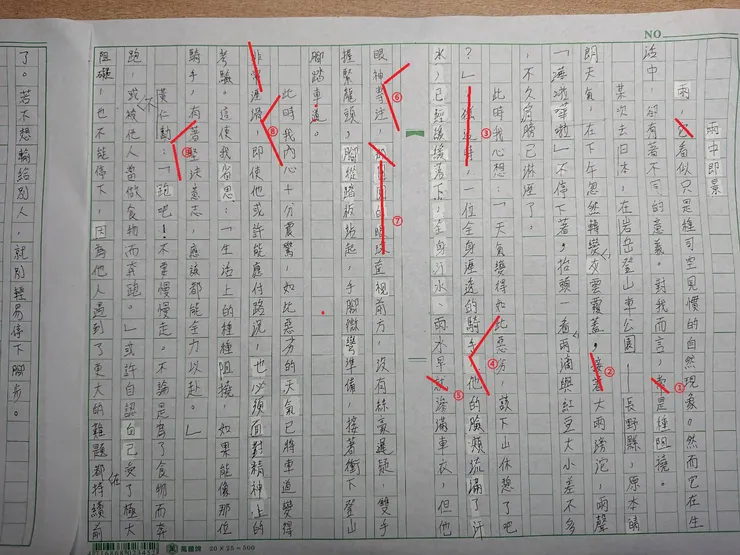 NO
雨中即景
雨,它看似只是種司空見慣的自然現象。然而它在生
活中,卻有著不同的意義。對我而言,常是種阻撓。
某次去日本,在岩岳登山車公園——長野縣,原本晴
朗天氣,在下午忽然轉變灰雲覆蓋,接著大雨滂沱,雨聲
「嘩啦嘩啦」不停下著。抬頭一看雨滴與紅豆大小差不多
,不久肩膀已淋溼了。
此時我心想:「天氣變得如此惡劣,該下山休憩了吧
?」一位全身溼透的騎手,他的臉頰流滿了汗
水,已經緩緩落下,全身汗水、雨水早就滲滿車衣,但他
眼神專注,直視前方,沒有絲毫遲疑,雙手
握緊龍頭,腳從踏板站起,手腳微彎準備,接著衝下登山
腳踏車道。
此時我內心十分震驚,如此惡劣的天氣已將車道變得
非常溼滑,即使他或許能應付路況,也必須面對精神上的
考驗。這使我省思:「生活上的種種阻撓,如果能像那位
騎手,有著堅決意志,應該都能全力以赴。」
黃仁勳:「跑吧!不要慢慢走。不論是為了食物而奔
跑,或被他人當做食物而奔跑。」或許自認自己受了極大
阻礙,也不能停下,因為他人遇到了更大的難題都持續前
了。若不想輸給別人,就別輕易停下腳步。
①
②
③
④
⑤
⑥
⑦
⑧
20 × 25 = 500